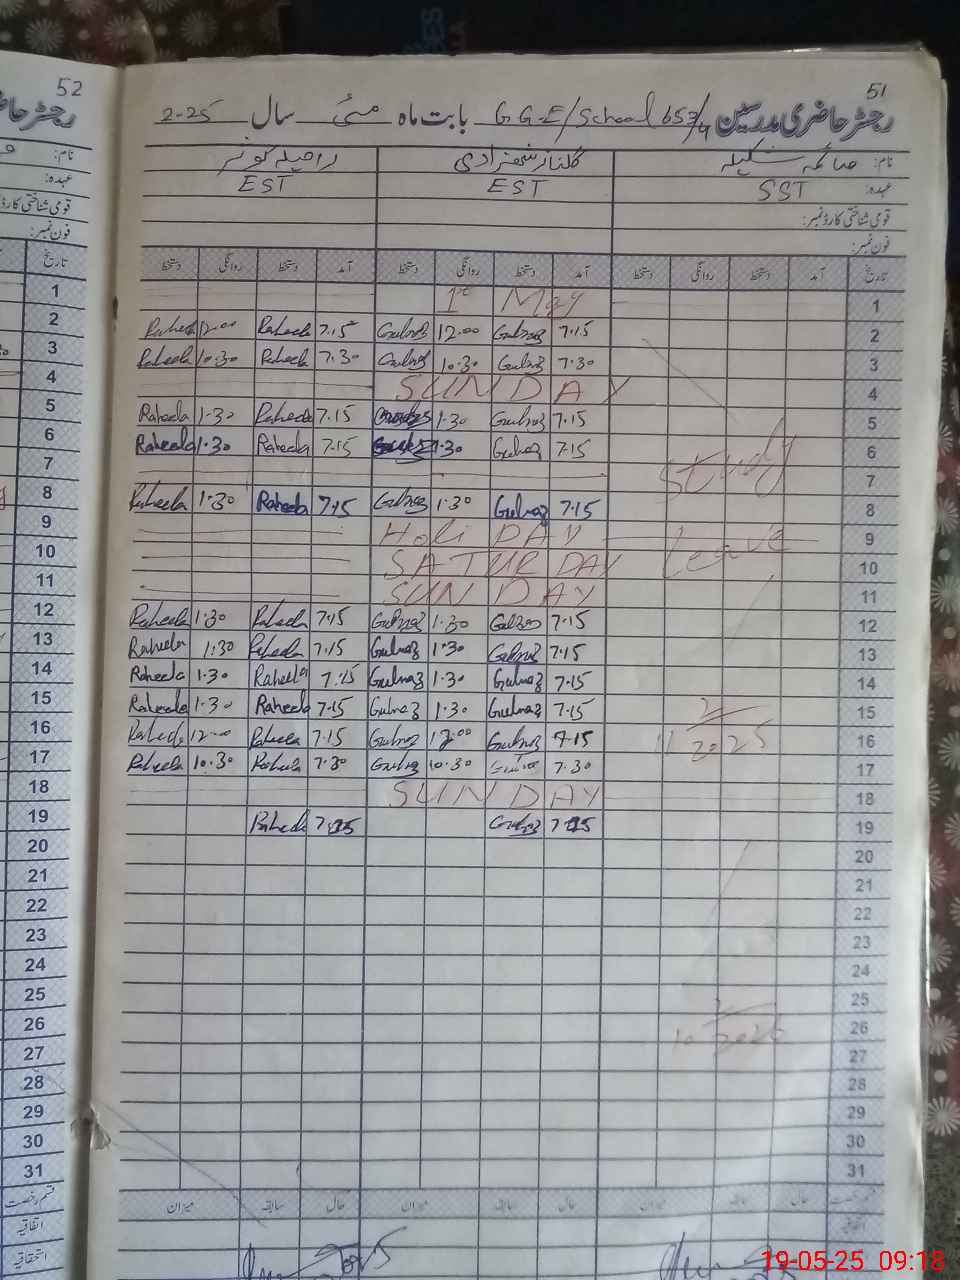 52
51
رجسٹر حاضری مدرسین G G-E/School 653/4 بابت ماہ مئی سال 2-25
نام: صائمہ شکیلہ گلناز شہزادی راحیلہ کوثر
عہدہ: SST EST EST
قومی شناختی کارڈ نمبر:
فون نمبر:
تاریخ آمد دستخط روانگی دستخط آمد دستخط روانگی دستخط آمد دستخط روانگی دستخط
1 1st May 1
2 Raheela 12.00 Raheela 7.15 Gulnaz 12.00 Gulnaz 7.15 2
3 Raheela 10.30 Raheela 7.30 Gulnaz 10.30 Gulnaz 7.30 3
4 SUNDAY 4
5 Raheela 1.30 Raheela 7.15 1.30 Gulnaz 7.15 5
6 Raheela 1.30 Raheela 7.15 1.30 Gulnaz 7.15 Study 6
7 7
8 Raheela 1.30 Raheela 7.15 Gulnaz 1.30 Gulnaz 7.15 8
9 Holi DAY Leave 9
10 SATUR DAY 10
11 SUN DAY 11
12 Raheela 1.30 Raheela 7.15 Gulnaz 1.30 Gulnaz 7.15 12
13 Raheela 1.30 Raheela 7.15 Gulnaz 1.30 Gulnaz 7.15 13
14 Raheela 1.30 Raheela 7.15 Gulnaz 1.30 Gulnaz 7.15 14
15 Raheela 1.30 Raheela 7.15 Gulnaz 1.30 Gulnaz 7.15 15
16 Raheela 12.00 Raheela 7.15 Gulnaz 12.00 Gulnaz 7.15 11 2/2025 16
17 Raheela 10.30 Raheela 7.30 Gulnaz 10.30 Gulnaz 7.30 17
18 SUN DAY 18
19 Raheela 7.15 Gulnaz 7.15 19
20 20
21 21
22 22
23 23
24 24
25 25
26 26
27 27
28 28
29 29
30 30
31 31
قسم رخصت حال سابقہ میزان حال سابقہ میزان حال سابقہ میزان
اتفاقیہ
استحقاقیہ
19-05-25 09:18